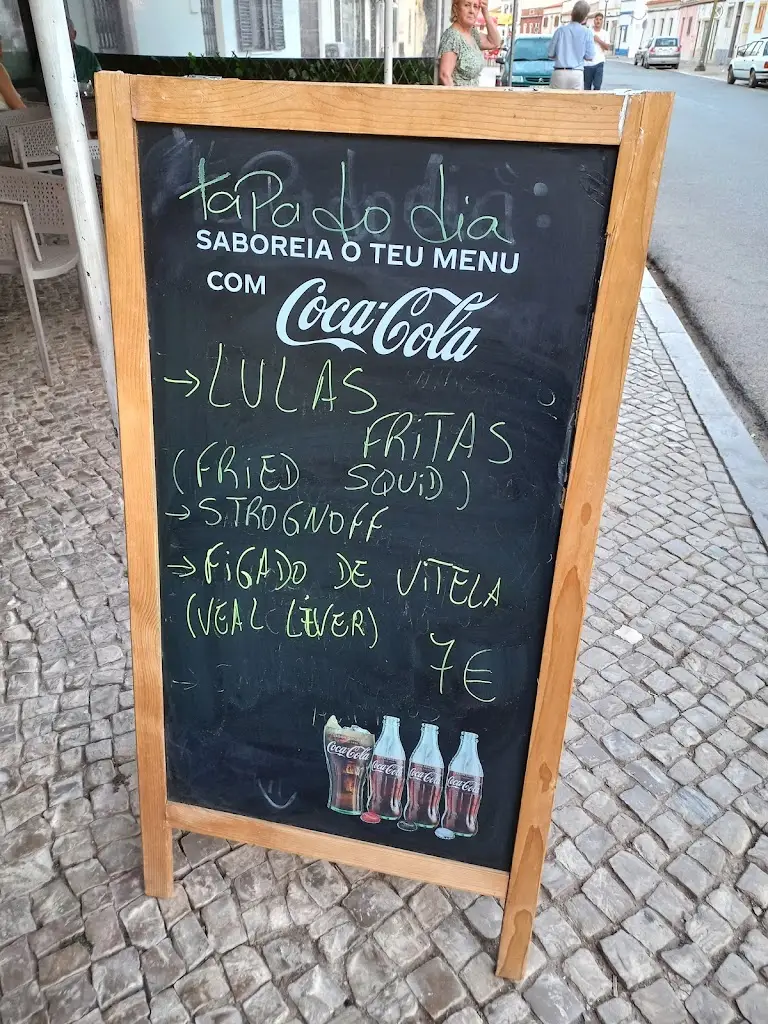 taPa do dia
SABOREIA O TEU MENU
COM Coca-Cola
→ LULAS
FRITAS
(FRIED SQUID)
→ STROGNOFF
→ FIGADO DE VITELA
(VEAL LIVER)
7€
Coca-Cola Coca-Cola Coca-Cola Coca-Cola